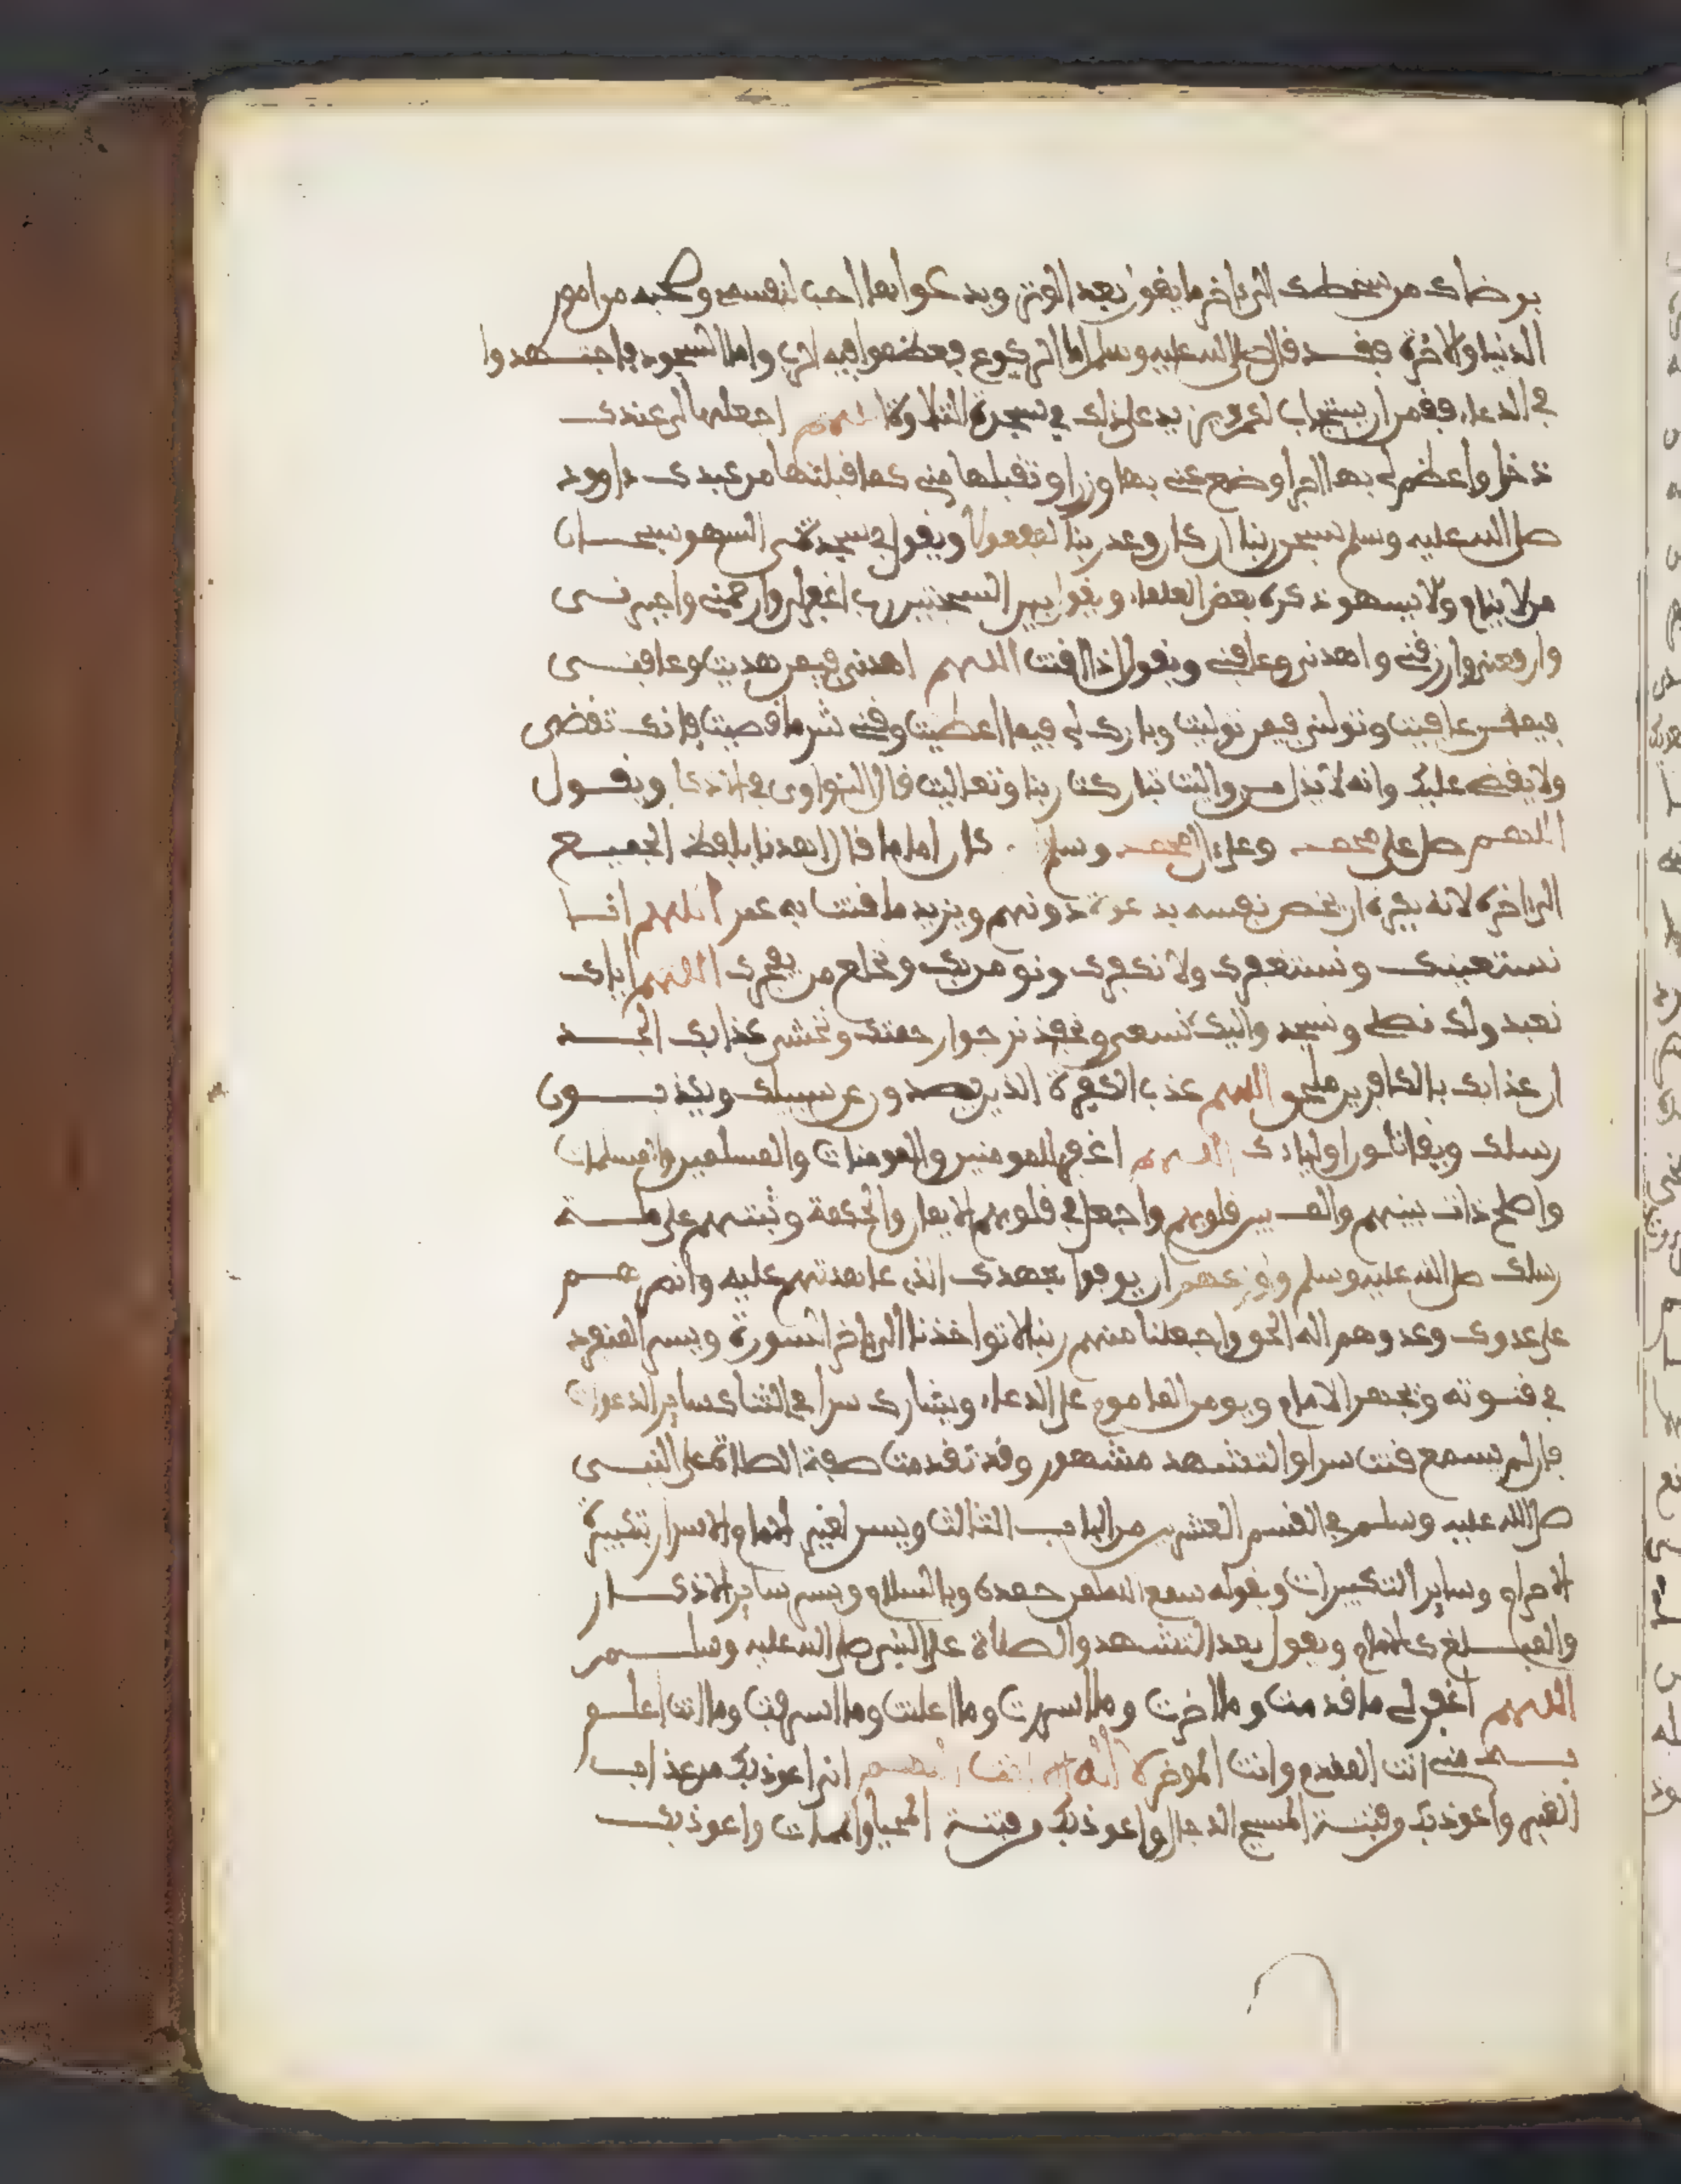 برضاك من سخطك الى اخر ما يقول بعد الوتر ويدعوا بما احب لنفسه وصحبه من امور
الدنيا والاخرة فقد قال صلى الله عليه وسلم اما الركوع فعظموا فيه الرب واما السجود فاجتهدوا
في الدعاء فقمن ان يستجاب لكم ويزيد على ذلك في سجدة التلاوة اللهم اجعلها لي عندك
ذخرا واعظم لي بها اجرا وضع عني بها وزرا وتقبلها مني كما قبلتها من عبدك داوود
صلى الله عليه وسلم سبحن ربنا ان كان وعد ربنا لمفعولا ويقول في سجدتي السهو سبحان
من لا ينام ولا يسهو ذكره بعض العلماء ويقول بين السجدتين رب اغفر لي وارحمني واجبرني
وارفعني وارزقني واهدني وعافني ويقول اذا اقنت اللهم اهدني فيمن هديت وعافني
فيمن عافيت وتولني فيمن توليت وبارك لي فيما اعطيت وقني شر ما قضيت فانك تقضي
ولا يقضى عليك وانه لا يذل من واليت تباركت ربنا وتعاليت قال النواوي في الاذكار ويقول
اللهم صل على محمد وعلى ال محمد وسلم . كان اماما قال اهدنا بلفظ الجميع
الى اخره لانه يكره ان يخص نفسه بدعوة دونهم ويزيد ما قنت به عمر اللهم انا
نستعينك ونستغفرك ولا نكفرك ونومن بك ونخلع من يفجرك اللهم اياك
نعبد ولك نصلي ونسجد واليك نسعى ونحفد نرجوا رحمتك ونخشى عذابك الجد
ان عذابك بالكافرين ملحق اللهم عذب الكفرة الذين يصدون عن سبيلك ويكذبون
رسلك ويقاتلون اولياءك اللهم اغفر للمومنين والمومنات والمسلمين والمسلمات
واصلح ذات بينهم والف بين قلوبهم واجعل في قلوبهم الايمان والحكمة وثبتهم على ملة
رسلك صلى الله عليه وسلم واوزعهم ان يوفوا بعهدك الذي عاهدتهم عليه وانصرهم
على عدوك وعدوهم اله الحق واجعلنا منهم ربنا لا تواخذنا الى اخر السورة ويسر المنفرد
في قنوته ويجهر الامام ويومن الماموم على الدعاء ويشارك سرا في الثنا كساير الدعوات
فان لم يسمع قنت سرا والتشهد مشهور وقد تقدمت صفة الصلاة على النبي
صلى الله عليه وسلم في القسم العشرين من الباب الثالث ويسر لغير الامام والاسرار بتكبيرة
الاحرام وساير التكبيرات وبقوله سمع الله لمن حمده وبالسلام ويسر بساير الاذكار
والمبلغ كالامام ويقول بعد التشهد والصلاة على النبي صلى الله عليه وسلم
اللهم اغفر لي ما قدمت وما اخرت وما اسررت وما اعلنت وما اسرفت وما انت اعلم
به مني انت المقدم وانت الموخر لا اله الا انت اللهم اني اعوذ بك من عذاب
القبر واعوذ بك من فتنة المسيح الدجال واعوذ بك من فتنة المحيا والممات واعوذ بك